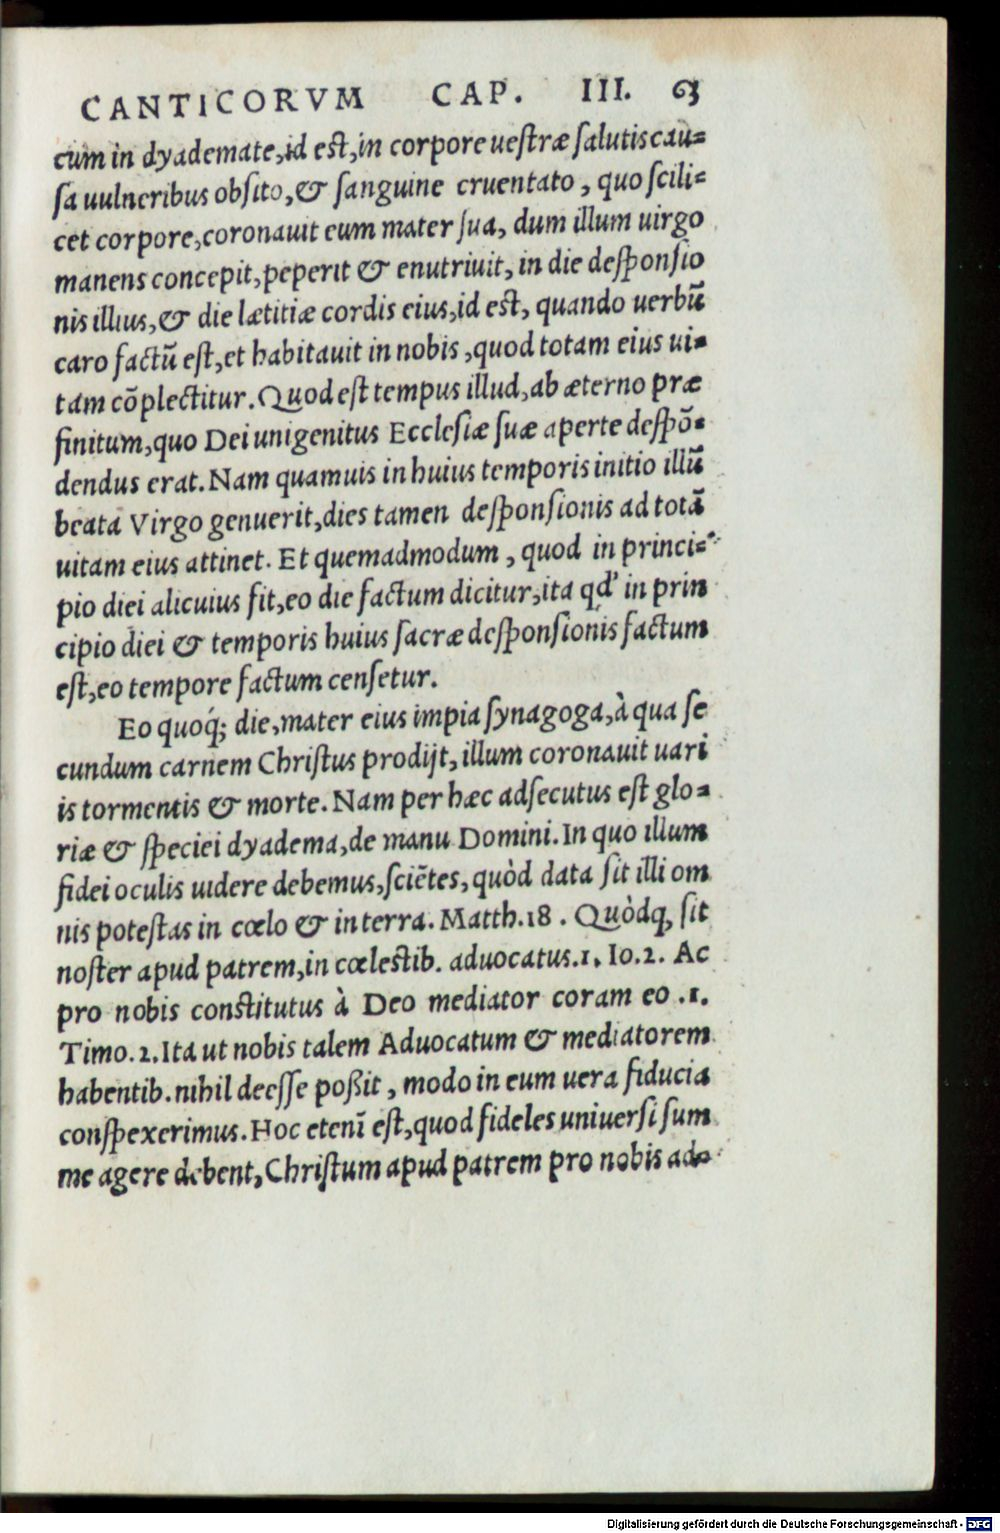 CANTICORVM CAP. III. 63
cum in dyademate, id est, in corpore uestræ salutis cau=
sa uulneribus obsito, & sanguine cruentato, quo scili=
cet corpore, coronauit eum mater sua, dum illum uirgo
manens concepit, peperit & enutriuit, in die desponsio
nis illius, & die lætitiæ cordis eius, id est, quando uerbũ
caro factũ est, et habitauit in nobis, quod totam eius ui=
tam cõplectitur. Quod est tempus illud, ab æterno præ
finitum, quo Dei unigenitus Ecclesiæ suæ aperte despõ=
dendus erat. Nam quamuis in huius temporis initio illũ
beata Virgo genuerit, dies tamen desponsionis ad totã
uitam eius attinet. Et quemadmodum, quod in princi=
pio diei alicuius fit, eo die factum dicitur, ita qd' in prin
cipio diei & temporis huius sacræ desponsionis factum
est, eo tempore factum censetur.
Eo quoq́; die, mater eius impia synagoga, à qua se
cundum carnem Christus prodijt, illum coronauit uari
is tormentis & morte. Nam per hæc adsecutus est glo=
riæ & speciei dyadema, de manu Domini. In quo illum
fidei oculis uidere debemus, sciẽtes, quòd data sit illi om
nis potestas in cœlo & in terra. Matth. 18. Quòdq; sit
noster apud patrem, in cœlestib. aduocatus. 1. Io. 2. Ac
pro nobis constitutus à Deo mediator coram eo .1.
Timo. 2. Ita ut nobis talem Aduocatum & mediatorem
habentib. nihil deesse poßit, modo in eum uera fiducia
conspexerimus. Hoc etenĩ est, quod fideles uniuersi sum
me agere debent, Christum apud patrem pro nobis ad=
Digitalisierung gefördert durch die Deutsche Forschungsgemeinschaft - DFG